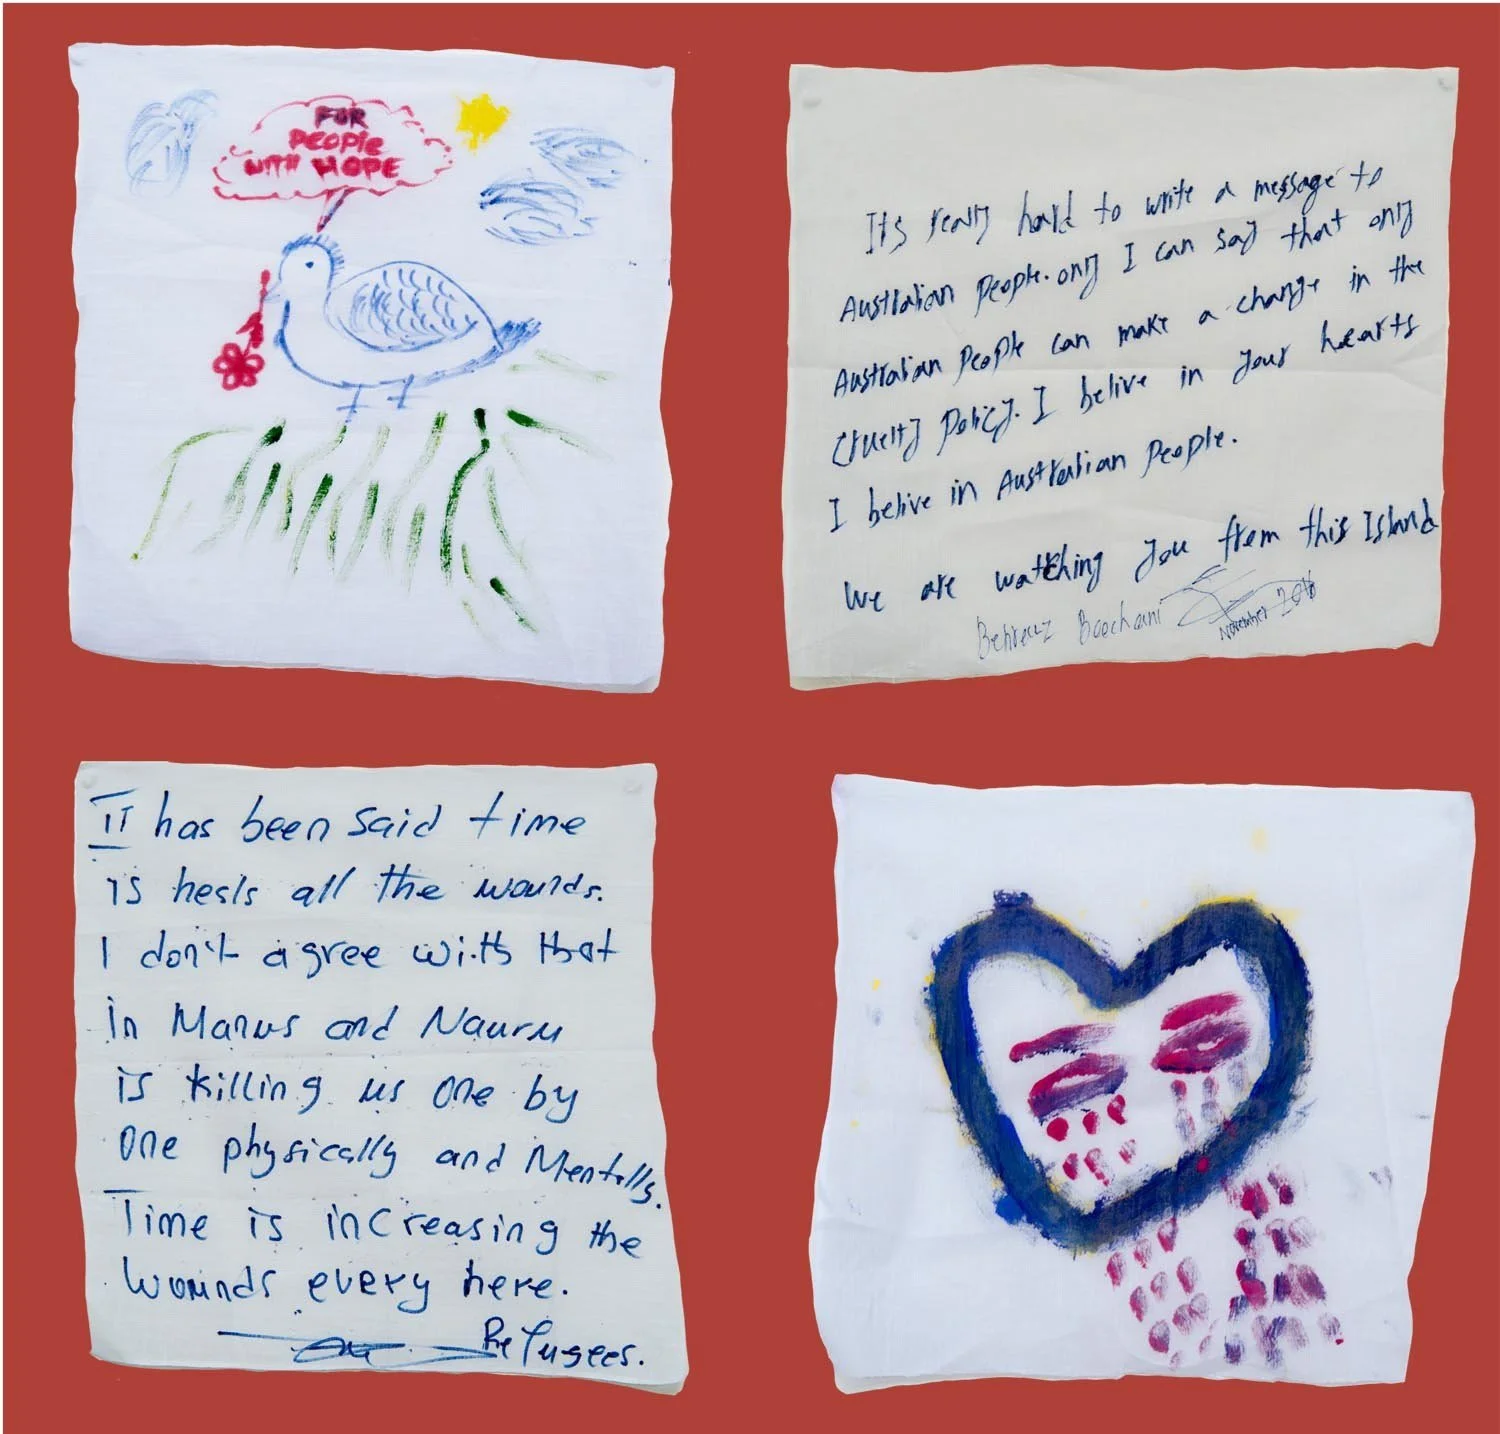 FOR
PEOPlE
WITH HOPE
It's realy hard to write a message to
Australian People. only I can say that only
Australian People can make a change in the
cruelty Policy. I belive in your hearts
I belive in Australian People.
We are watching you from this Island
Behrouz Boochani
November 2016
IT has been said time
is heals all the wounds.
I don't agree with that
in Manus and Nauru
is killing us one by
one physically and Mentally.
Time is increasing the
wounds every here.
Refugees.